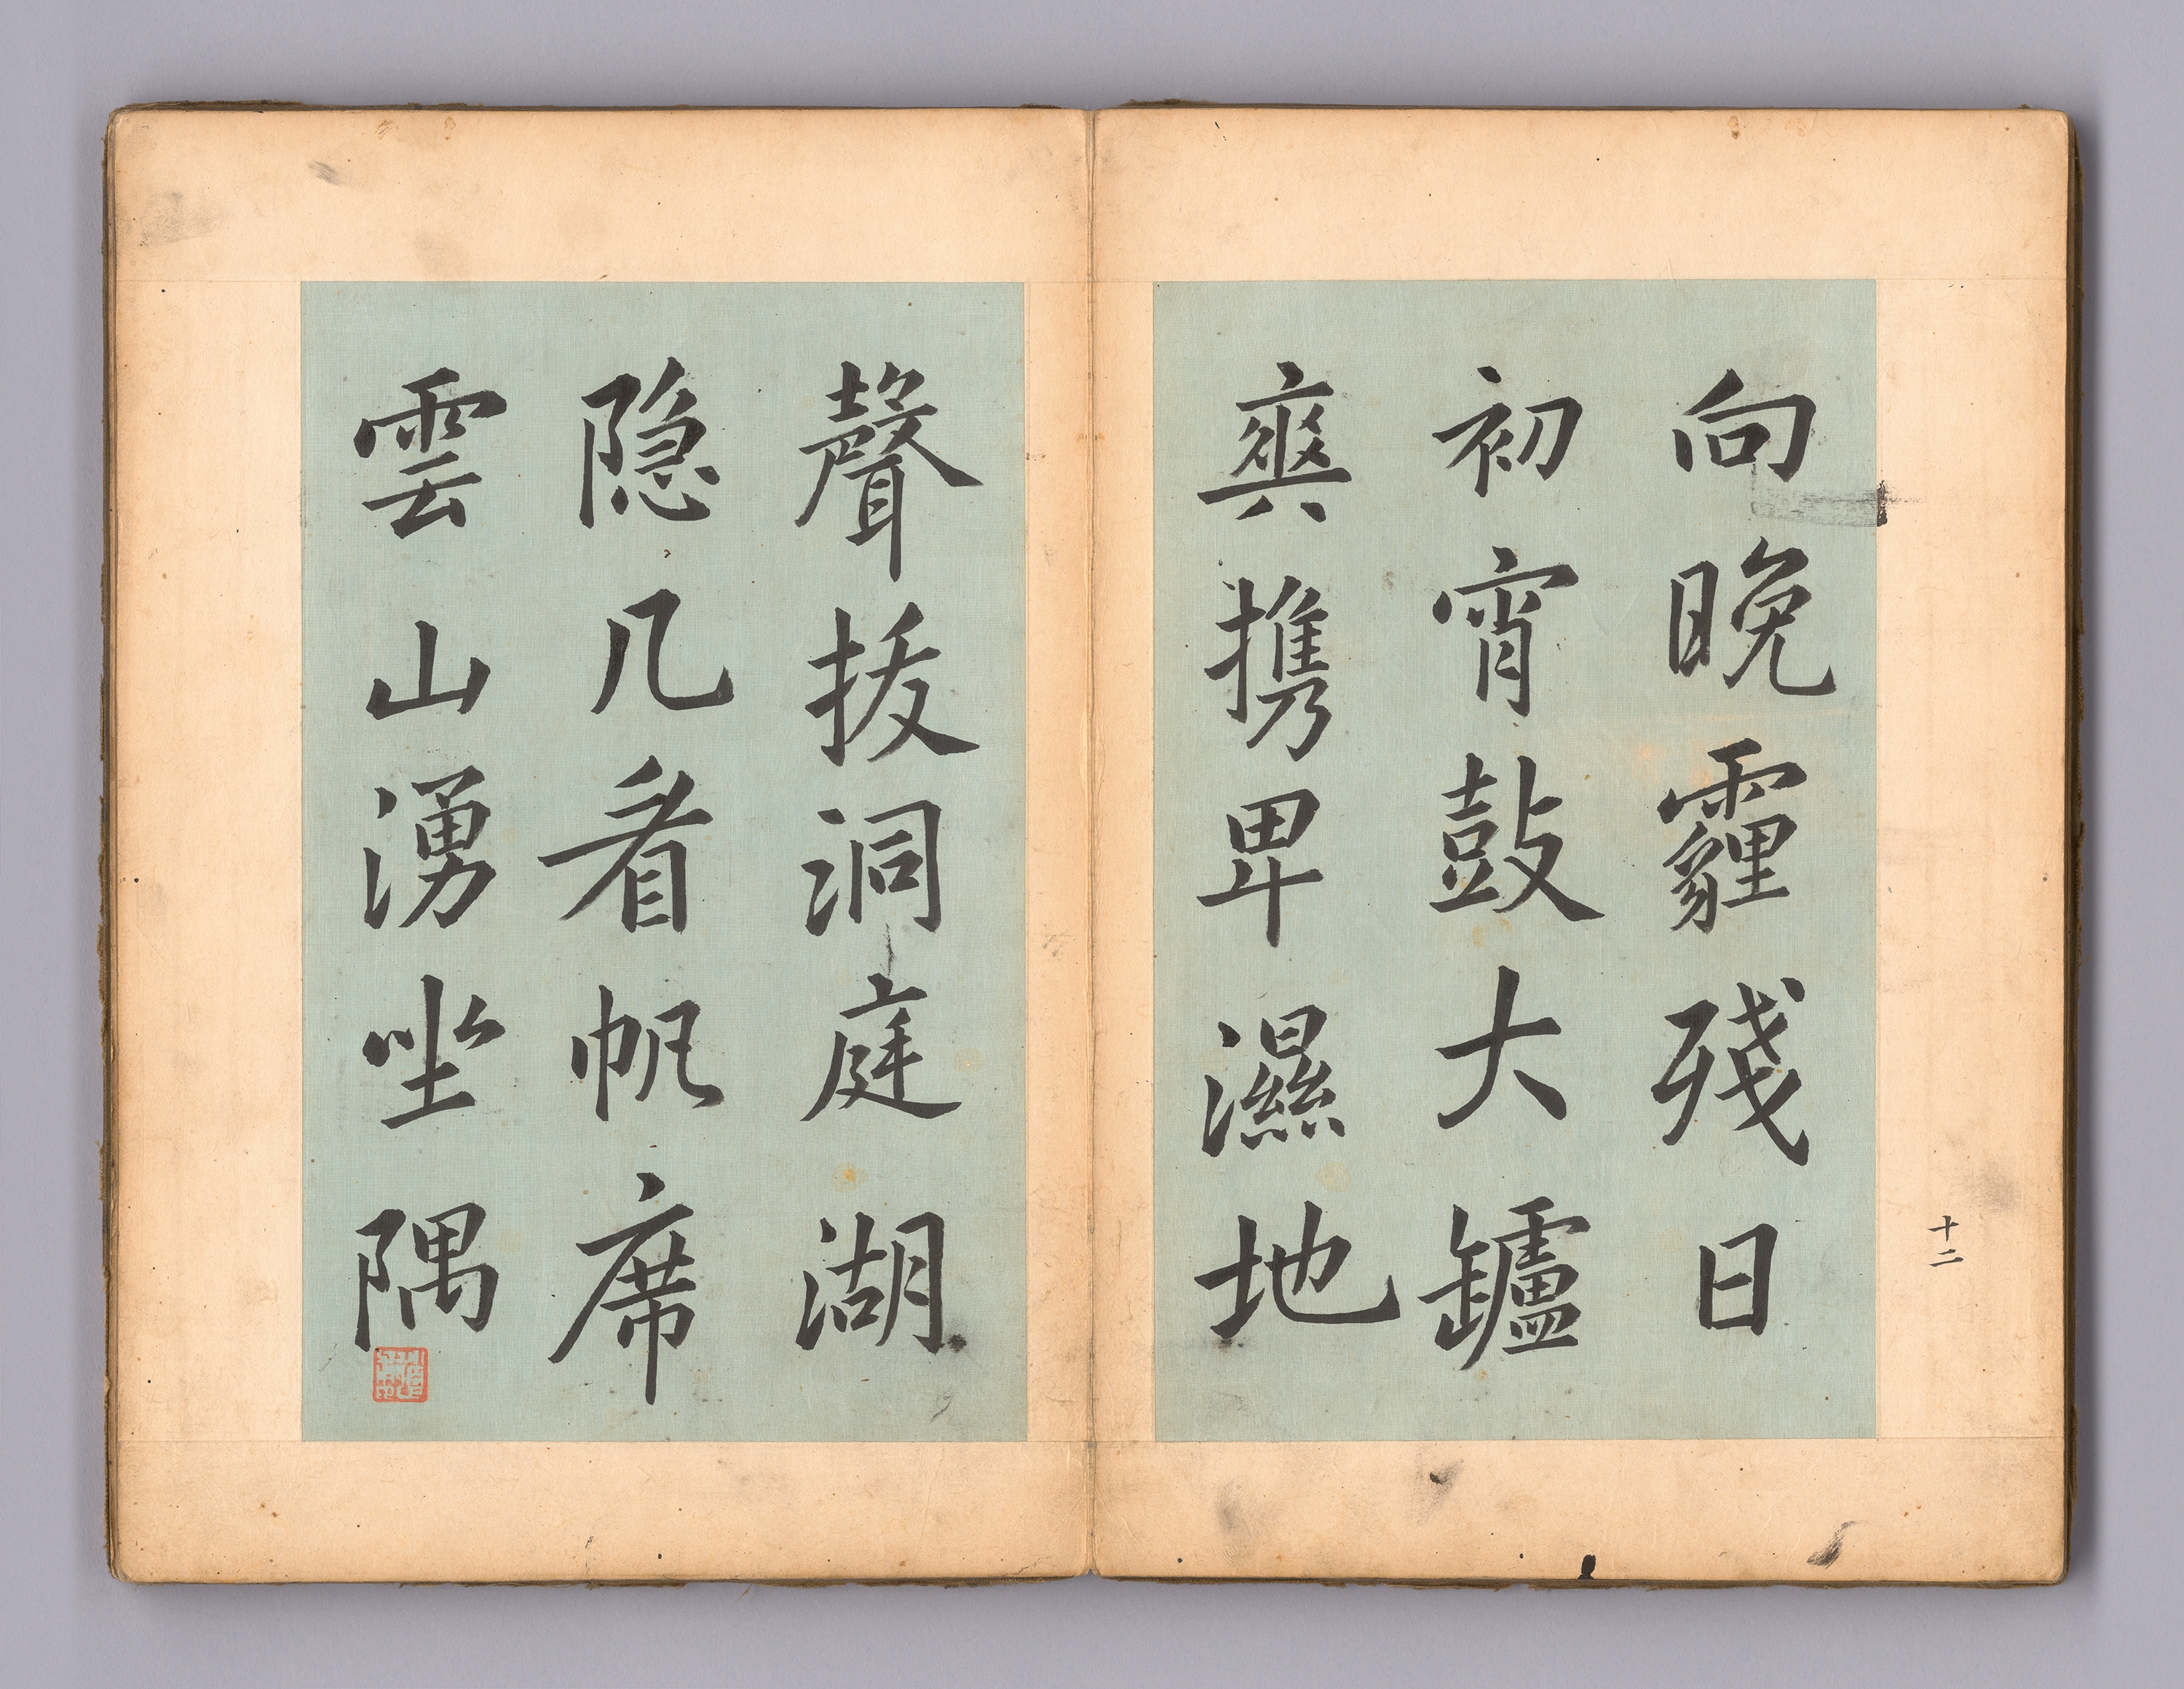 十二
向晚霾殘日
初宵鼓大鑪
爽携卑濕地
聲拔洞庭湖
隐几看帆席
雲山湧坐隅